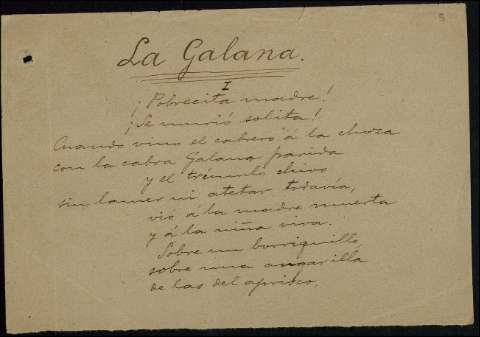 5
La Galana.
I
¡Pobrecita madre!
¡Se murió solita!
Cuando vino el cabrero á la choza
con la cabra Galana parida
y el trémulo chivo
sin lamer ni atetar todavía,
vió á la madre muerta
y á la niña viva.
Sobre un borriquillo,
sobre una angarilla
de las del aprisco,